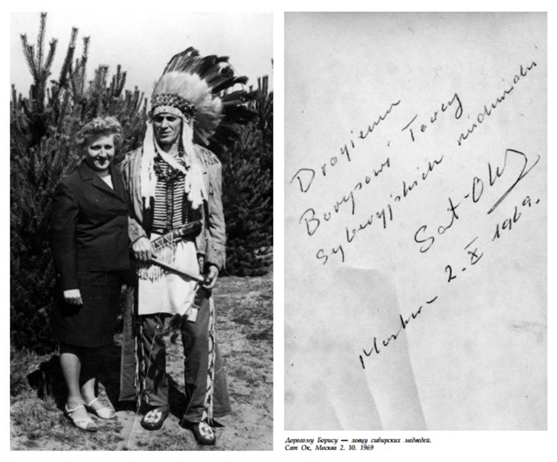 Drogiemu
Borysowi
Syberyjskich niedźwiedzi
Sat-Ok
Moskwa 2.X 1969.
Дорогому Борису — ловцу сибирских медведей.
Сат Ок, Москва 2. 10. 1969